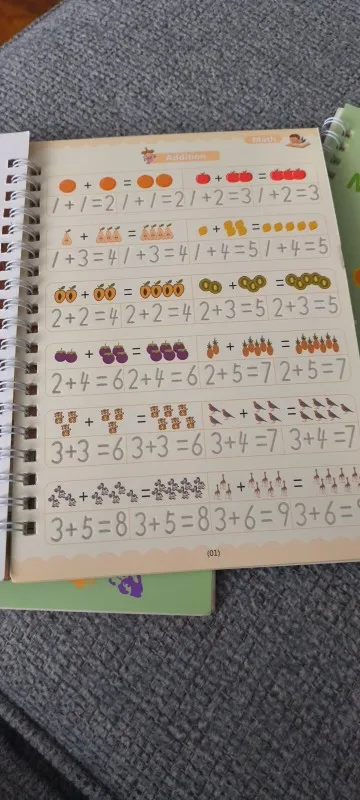 Math
Addition
+ = + =
1+1=2 1+1=2 1+2=3 1+2=3
+ = + =
1+3=4 1+3=4 1+4=5 1+4=5
+ = + =
2+2=4 2+2=4 2+3=5 2+3=5
+ = + =
2+4=6 2+4=6 2+5=7 2+5=7
+ = + =
3+3=6 3+3=6 3+4=7 3+4=7
+ = + =
3+5=8 3+5=8 3+6=9 3+6=
(01)